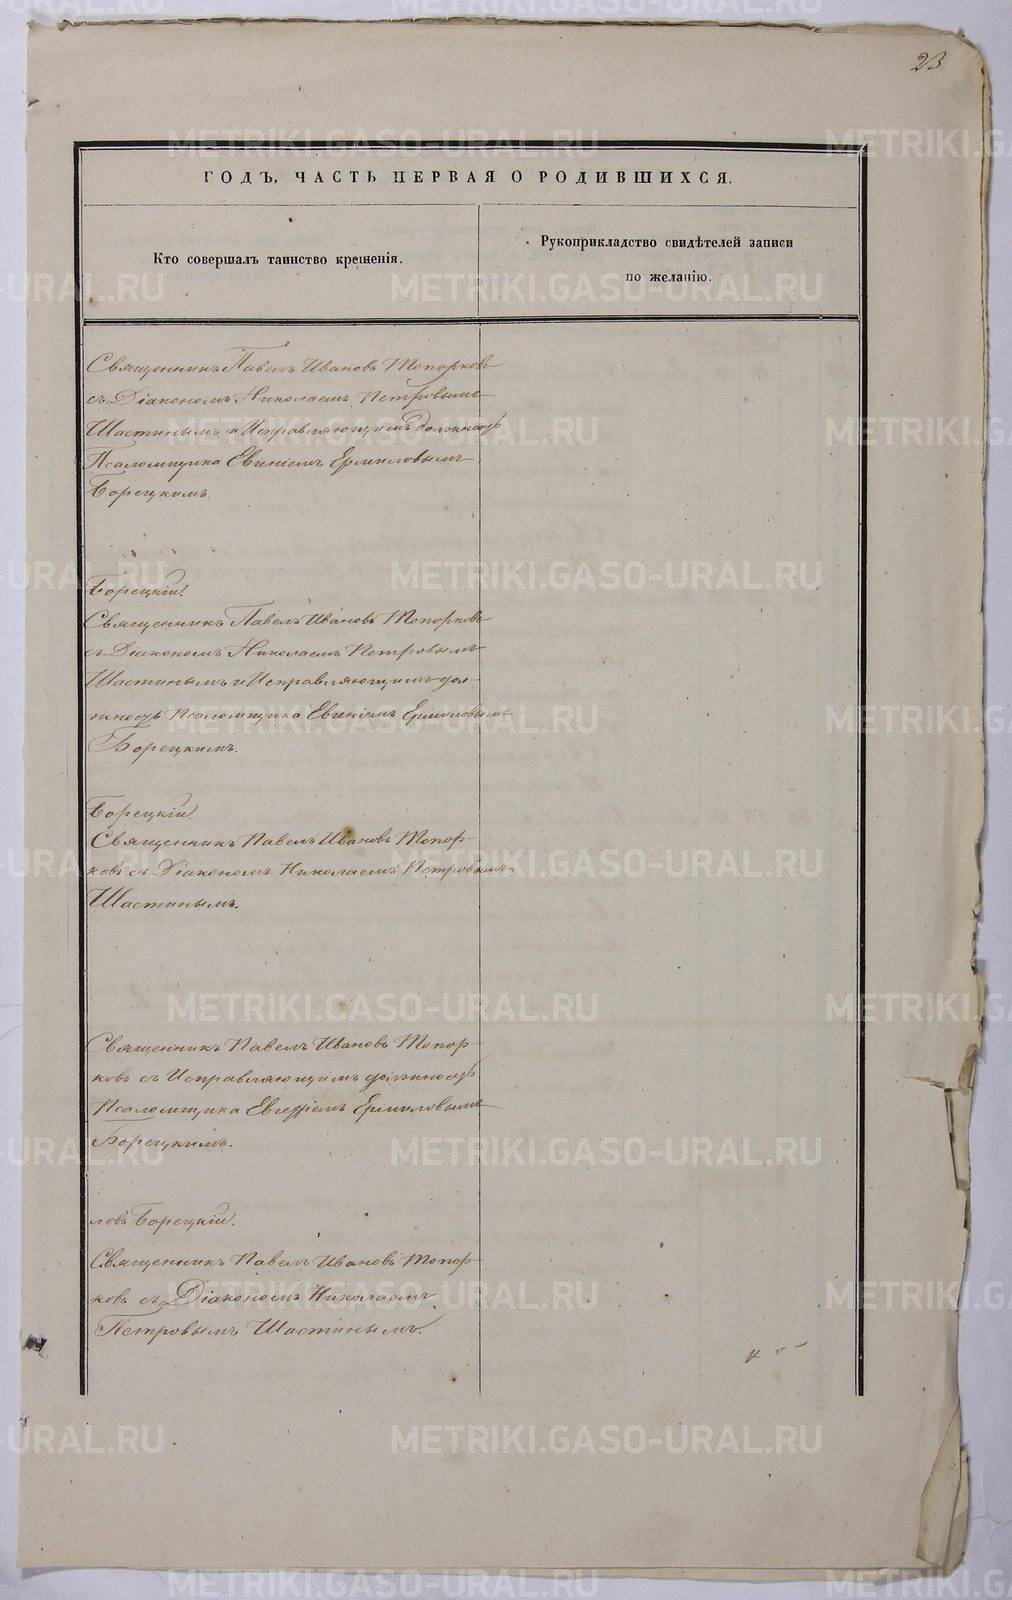 23
ГОДЪ, ЧАСТЬ ПЕРВАЯ О РОДИВШИХСЯ.
Кто совершалъ таинство крещенія.
Рукоприкладство свидѣтелей записи
по желанію.
Священникъ Павелъ Ивановъ Топорковъ
съ Діакономъ Николаемъ Петровымъ
Шастинымъ и Исправляющимъ должность
Псаломщика Евгеніемъ Ермиловымъ
Борецкимъ.
Борецкій.
Священникъ Павелъ Ивановъ Топорковъ
съ Діакономъ Николаемъ Петровымъ
Шастинымъ и Исправляющимъ дол-
жность Псаломщика Евгеніемъ Ермиловымъ
Борецкимъ.
Борецкій.
Священникъ Павелъ Ивановъ Топор-
ковъ съ Діакономъ Николаемъ Петровымъ
Шастинымъ.
Священникъ Павелъ Ивановъ Топор-
ковъ съ Исправляющимъ должность
Псаломщика Евгеніемъ Ермиловымъ
Борецкимъ.
ловъ Борецкій.
Священникъ Павелъ Ивановъ Топор-
ковъ съ Діакономъ Николаемъ
Петровымъ Шастинымъ.
METRIKI.GASO-URAL.RU